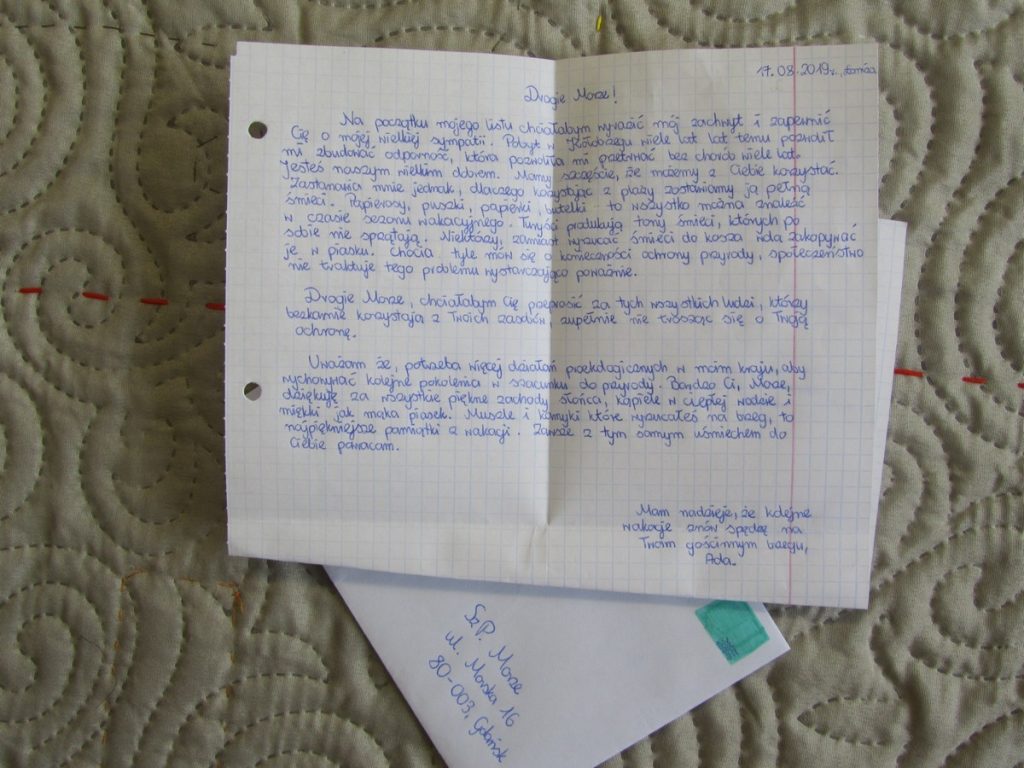 17.08.2019r., Łomża
Drogie Morze!
Na początku mojego listu chciałabym wyrazić mój zachwyt i zapewnić
Cię o mojej wielkiej sympatii. Pobyt w Kołobrzegu wiele lat lat temu pozwolił
mi zbudować odporność, która pozwoliła mi przetrwać bez chorób wiele lat.
Jesteś naszym wielkim dobrem. Mamy szczęście, że możemy z Ciebie korzystać.
Zastanawia mnie jednak, dlaczego korzystając z plaży zostawiamy ją pełną
śmieci. Papierosy, puszki, papierki, butelki - to wszystko można znaleść
w czasie sezonu wakacyjnego. Turyści produkują tony śmieci, których po
sobie nie sprzątają. Niektórzy, zamiast wyrzucać śmieci do kosza wolą zakopywać
je w piasku. Chocia tyle mówi się o konieczności ochrony przyrody, społeczeństwo
nie traktuje tego problemu wystarczająco poważnie.
Drogie Morze, chciałabym Cię przeprosić za tych wszystkich ludzi, którzy
bezkarnie korzystają z Twoich zasobów, zupełnie nie troszcząc się o Twoją
ochronę.
Uważam że, potrzeba więcej działań proekologicznych w moim kraju, aby
wychowywać kolejne pokolenia w szacunku do przyrody. Bardzo Ci, Morze,
dziękuję za wszystkie piękne zachody słońca, kąpiele w ciepłej wodzie i
miękki jak mąka piasek. Muszle i kamyki które wyrzucałeś na brzeg, to
najpiękniejsze pamiątki z wakacji. Zawsze z tym samym uśmiechem do
Ciebie powracam.
Mam nadzieje, że kolejne
wakacje znów spędzę na
Twoim gościnnym brzegu,
Ada.
Sz.P. Morze
ul. Morska 16
80-003, Gdańsk